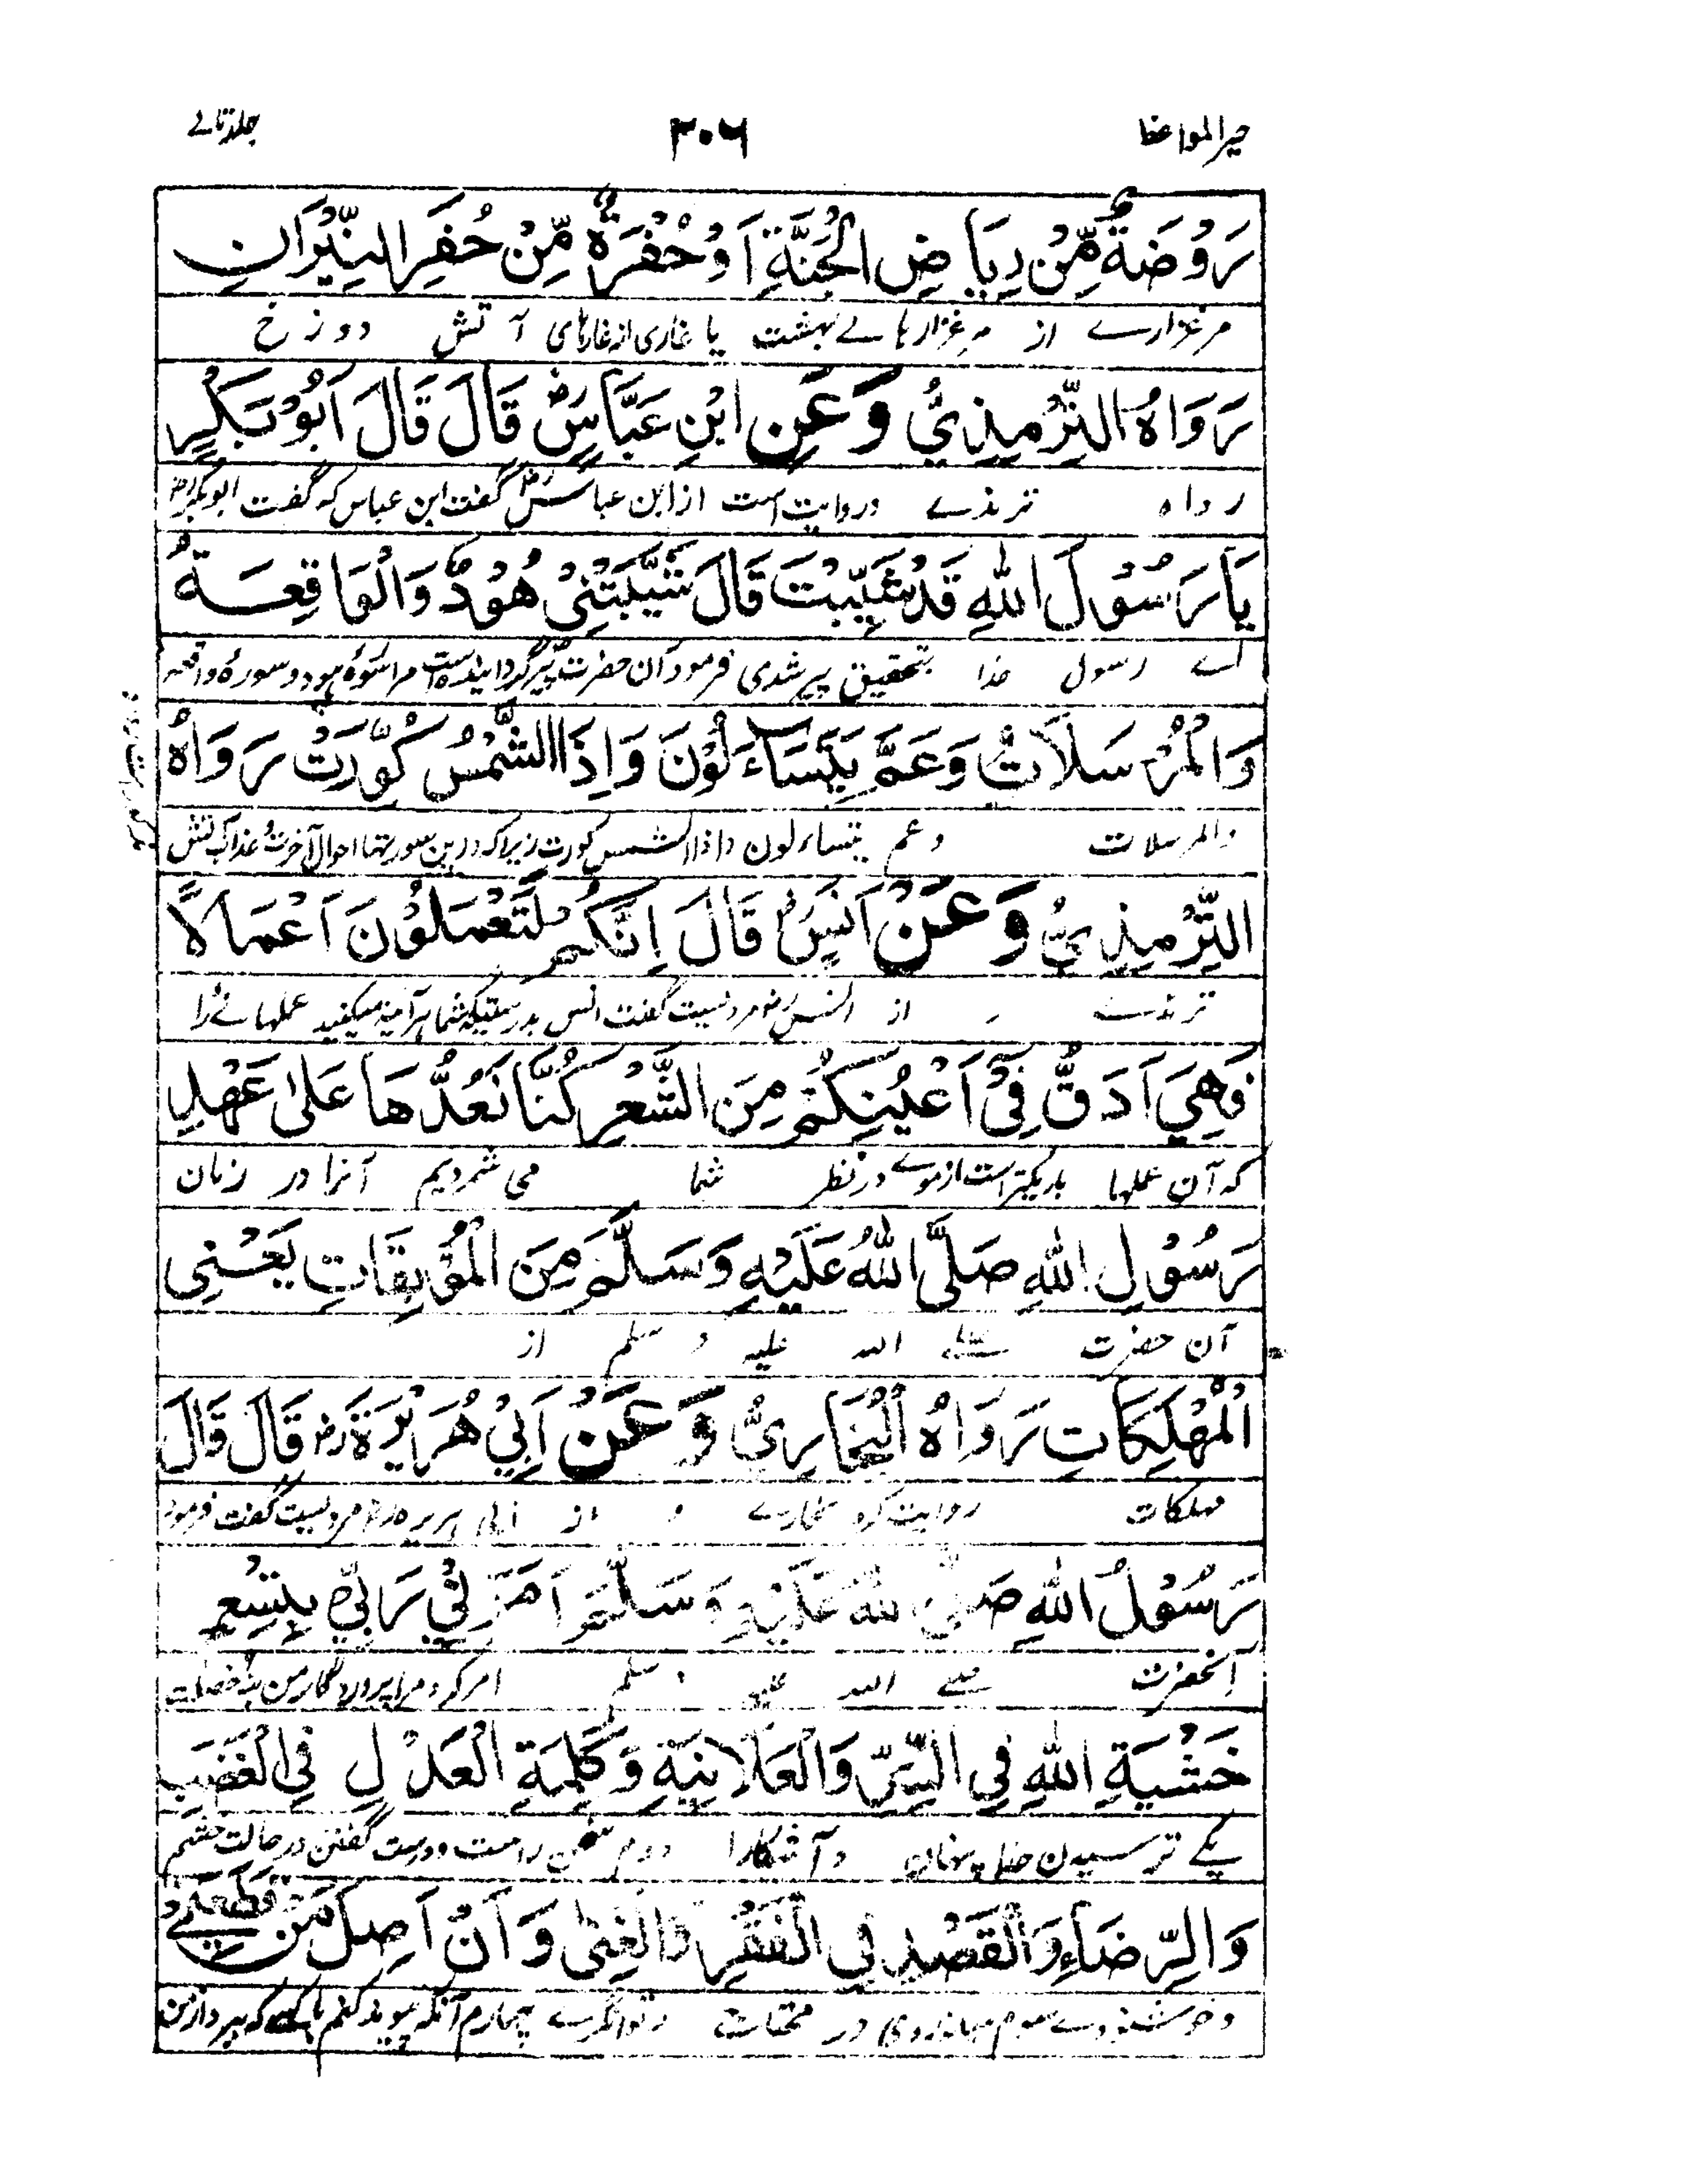 خیر المواعظ ۳۰۶ جلد ثانی
رَوْضَةٌ مِّنْ رِيَاضِ الْجَنَّةِ اَوْ حُفْرَةٌ مِّنْ حُفَرِ النِّيْرَانِ
مرغزارے از مرغزارہائے بہشت یا غاری از غارہای آتش دوزخ
رَوَاهُ التِّرْمِذِيُّ وَعَنِ ابْنِ عَبَّاسٍ رض قَالَ قَالَ اَبُوْ بَكْرٍ
رواہ ترمذے و روایت است از ابن عباس رض گفت ابن عباس کہ گفت ابوبکر رض
يَا رَسُوْلَ اللهِ قَدْ شِيْبْتَ قَالَ شَيَّبَتْنِيْ هُوْدٌ وَالْوَاقِعَةُ
اے رسول خدا بتحقیق پیر شدی فرمود آن حضرت پیر گردانیدہ است مرا سورۂ ہود و سورۂ واقعہ
وَالْمُرْسَلَاتُ وَعَمَّ يَتَسَاءَلُوْنَ وَاِذَا الشَّمْسُ كُوِّرَتْ رَوَاهُ
والمرسلات وعم یتساءلون واذا الشمس کورت زیرا کہ درین سورتہا احوال آخرت و عذاب آتش
التِّرْمِذِيُّ وَعَنْ اَنَسٍ رض قَالَ اِنَّكُمْ لَتَعْمَلُوْنَ اَعْمَالًا
ترمذے و از انس رض مرویست گفت انس بدرستیکہ شما ہر آینہ میکنید عملہائے را
فَهِيَ اَدَقُّ فِيْ اَعْيُنِكُمْ مِنَ الشَّعْرِ كُنَّا نَعُدُّهَا عَلىٰ عَهْدِ
کہ آن عملہا باریکتر است از موے در نظر شما می شمردیم آنرا در زمان
رَسُوْلِ اللهِ صَلَّى اللهُ عَلَيْهِ وَسَلَّمَ مِنَ الْمُوْبِقَاتِ يَعْنِي
آن حضرت صلے اللہ علیہ و سلم از
الْمُهْلِكَاتِ رَوَاهُ الْبُخَارِيُّ وَعَنْ اَبِيْ هُرَيْرَةَ رض قَالَ قَالَ
مہلکات روایت کرد بخارے و از ابی ہریرہ رض مرویست گفت فرمود
رَسُوْلُ اللهِ صَلَّى اللهُ عَلَيْهِ وَسَلَّمَ اَمَرَنِيْ رَبِّيْ بِتِسْعٍ
آنحضرت صلے اللہ علیہ و سلم امر کرد مرا پروردگار من بنہ خصلت
خَشْيَةِ اللهِ فِي السِّرِّ وَالْعَلَانِيَةِ وَكَلِمَةِ الْعَدْلِ فِي الْغَضَبِ
یکے ترسیدن خدا پنہان و آشکارا دوم سخن راست و درست گفتن در حالت خشم
وَالرِّضَاءِ وَالْقَصْدِ فِي الْفَقْرِ وَالْغِنىٰ وَاَنْ اَصِلَ مَنْ قَطَعَنِيْ
و خوشنودے سوم میانہ روی در محتاجے و توانگرے چہارم آنکہ پیوند کنم با کسے کہ ببرد از من